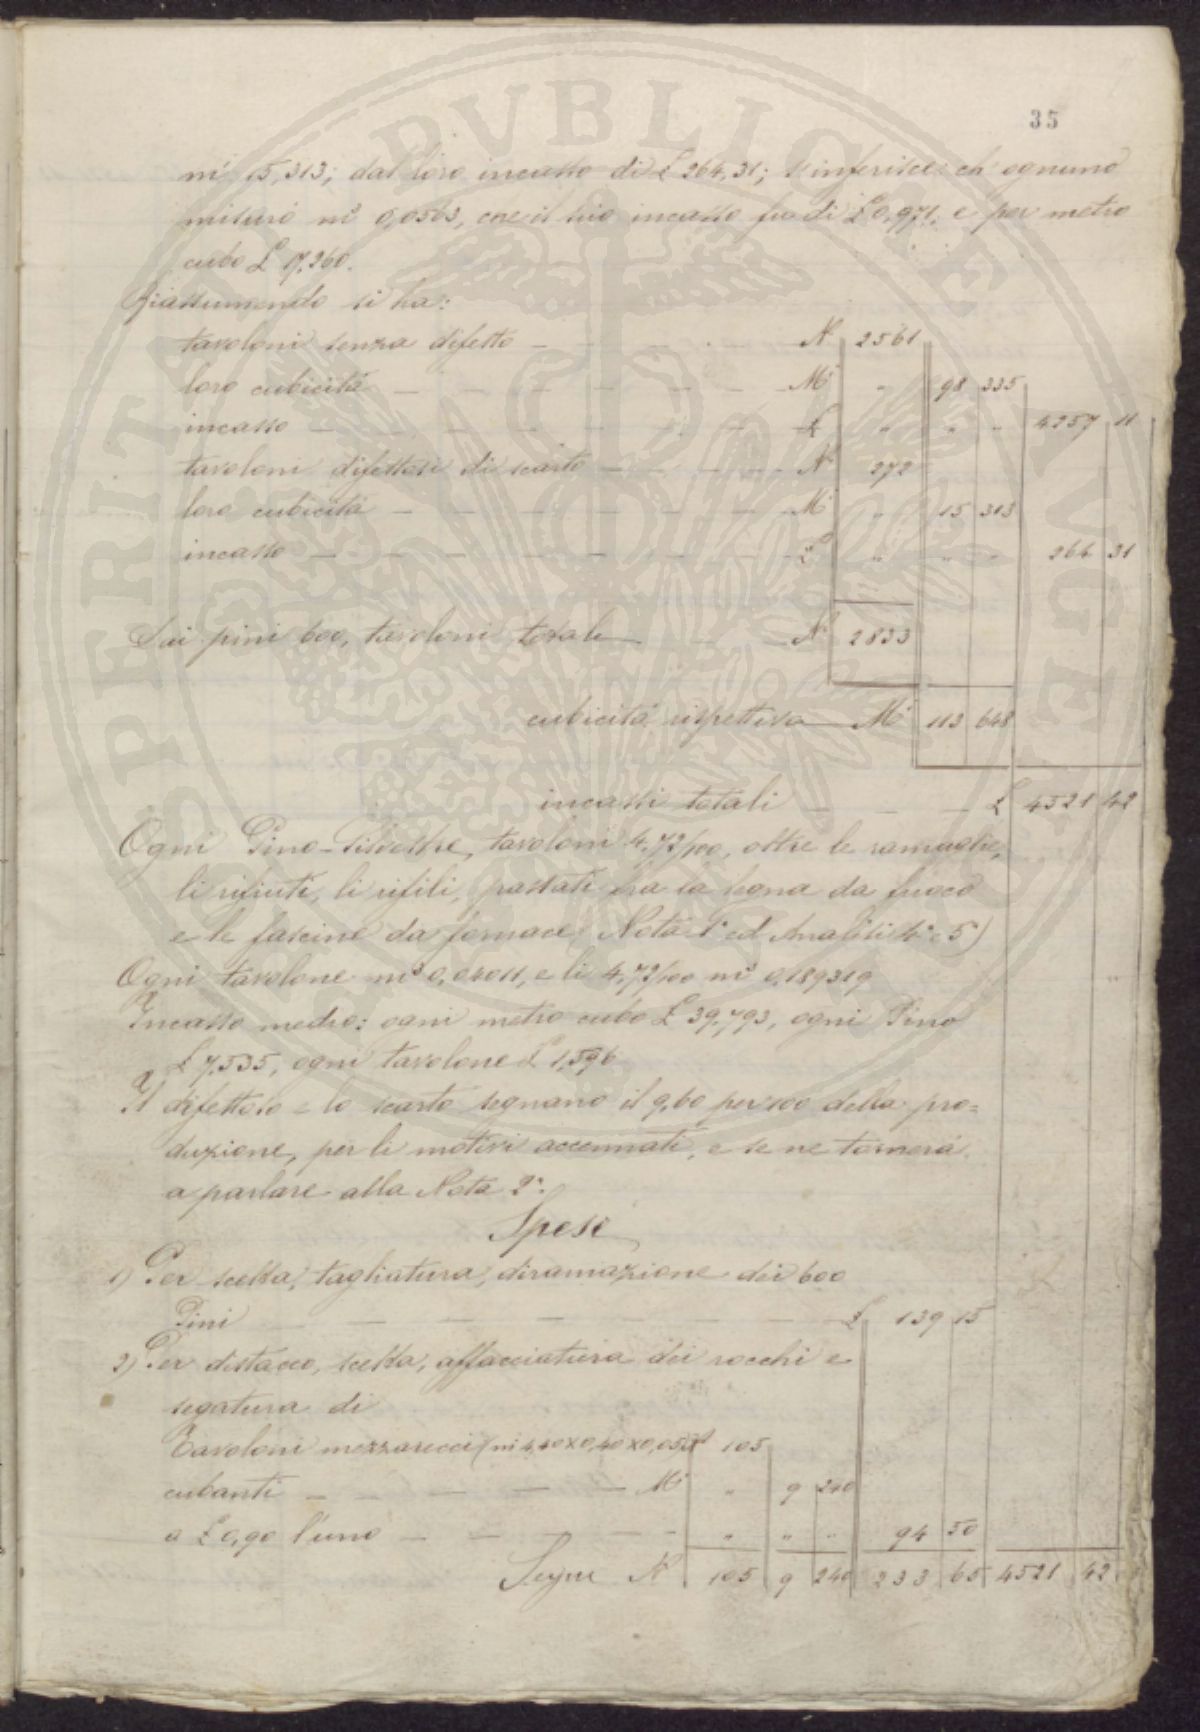 35
m³ 15,313; dal loro incasso di £ 264,31; s'inferisce: ch'ognuno
misurò m³ 0,0563, che il suo incasso fu di £ 0,971, e per metro
cubo £ 17,260.
Riassumendo si ha:
tavoloni senza difetto — N° 2561
loro cubicità — M³ " 98 335
incasso — £ " " " 4257 11
tavoloni difettosi di scarto — N° 272
loro cubicità — M³ " 15 313
incasso — £ " " " 264 31
Dai pini 600, tavoloni totale — N° 2833
cubicità rispettiva — M³ 113 648
incassi totali — £ 4521 42
Ogni Pino-Silvestre, tavoloni 4,72/100, oltre le ramaglie,
li rifiuti, li rifili, passati fra la legna da fuoco
e le fascine da fornace. Nota 1ª ed Analisi 4ª e 5ª)
Ogni tavolone m³ 0,04011, e li 4,72/100 m³ 0,189319
Incasso medio: ogni metro cubo £ 39,793, ogni Pino
£ 7,535, ogni tavolone £ 1,596
Il difettoso e lo scarto segnano il 9,60 per 100 della pro=
duzione, per li motivi accennati, e se ne tornerà
a parlare alla Nota 2ª.
Spese
1) Per scelta, tagliatura, diramazione dei 600
Pini — £ 139 15
2) Per distacco, scelta, affacciatura dei rocchi e
segatura di
Tavoloni mezzarecci (m 4,40 x 0,40 x 0,05) N° 105
cubanti — M³ " 9 240
a £ 0,90 l'uno — " " " 94 50
Segue N° 105 9 240 233 65 4521 42
SPERITAT PVBLICAE AVGENDAE